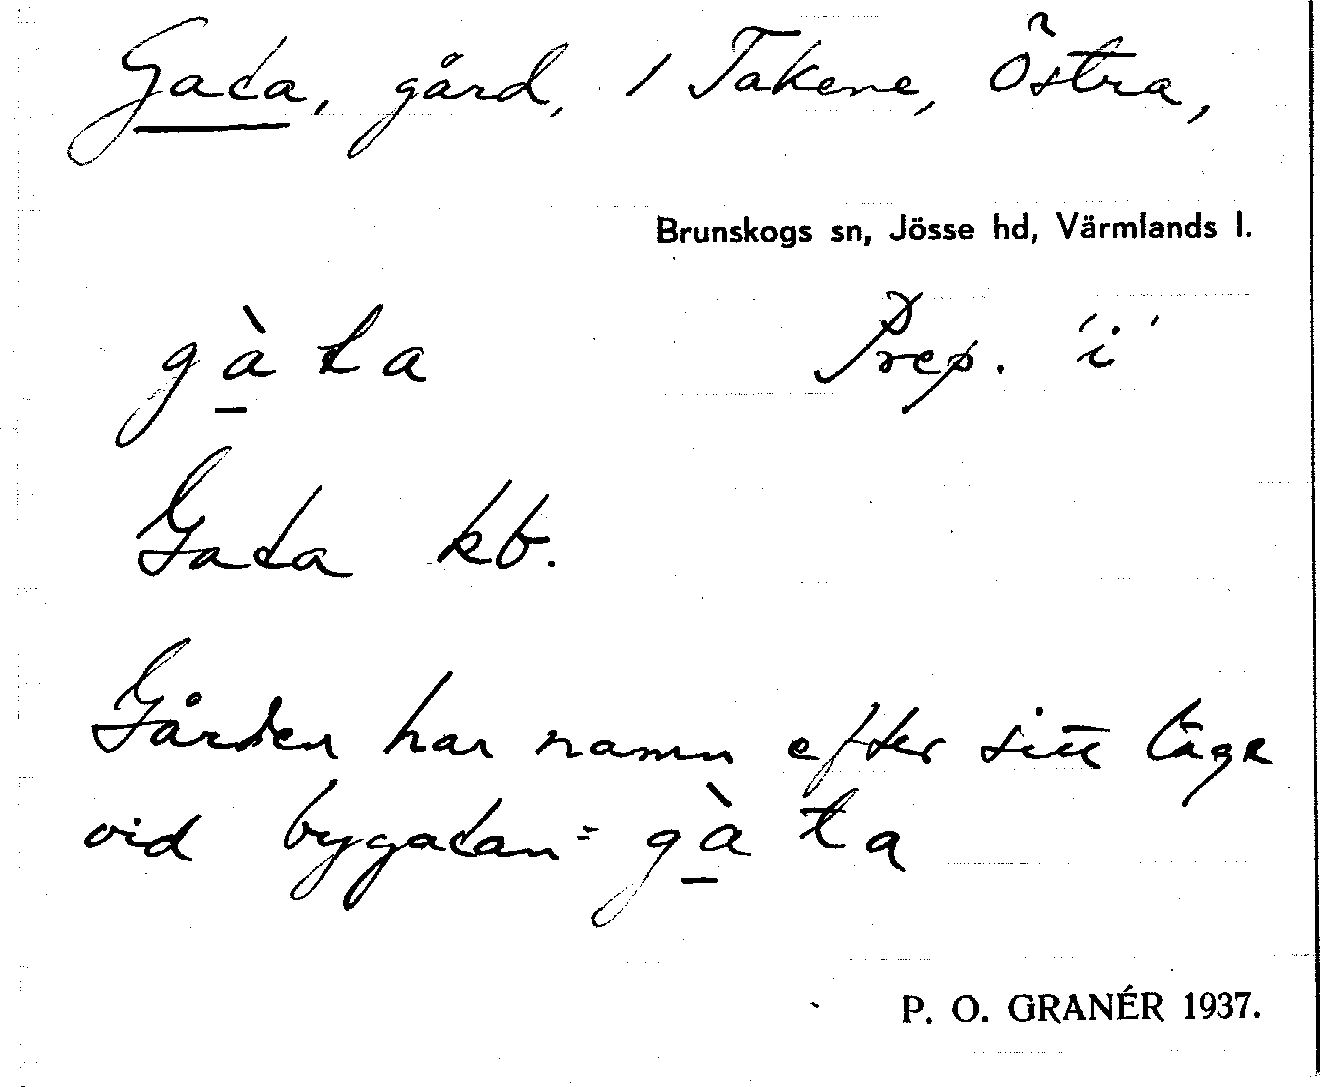 Gata, gård, i Takene, Östra,
Brunskogs sn, Jösse hd, Värmlands l.
gà̱ta Prep. 'i'
Gata kb.
Gården har namn efter sitt läge
vid bygatan = gà̱ta
P. O. GRANÉR 1937.